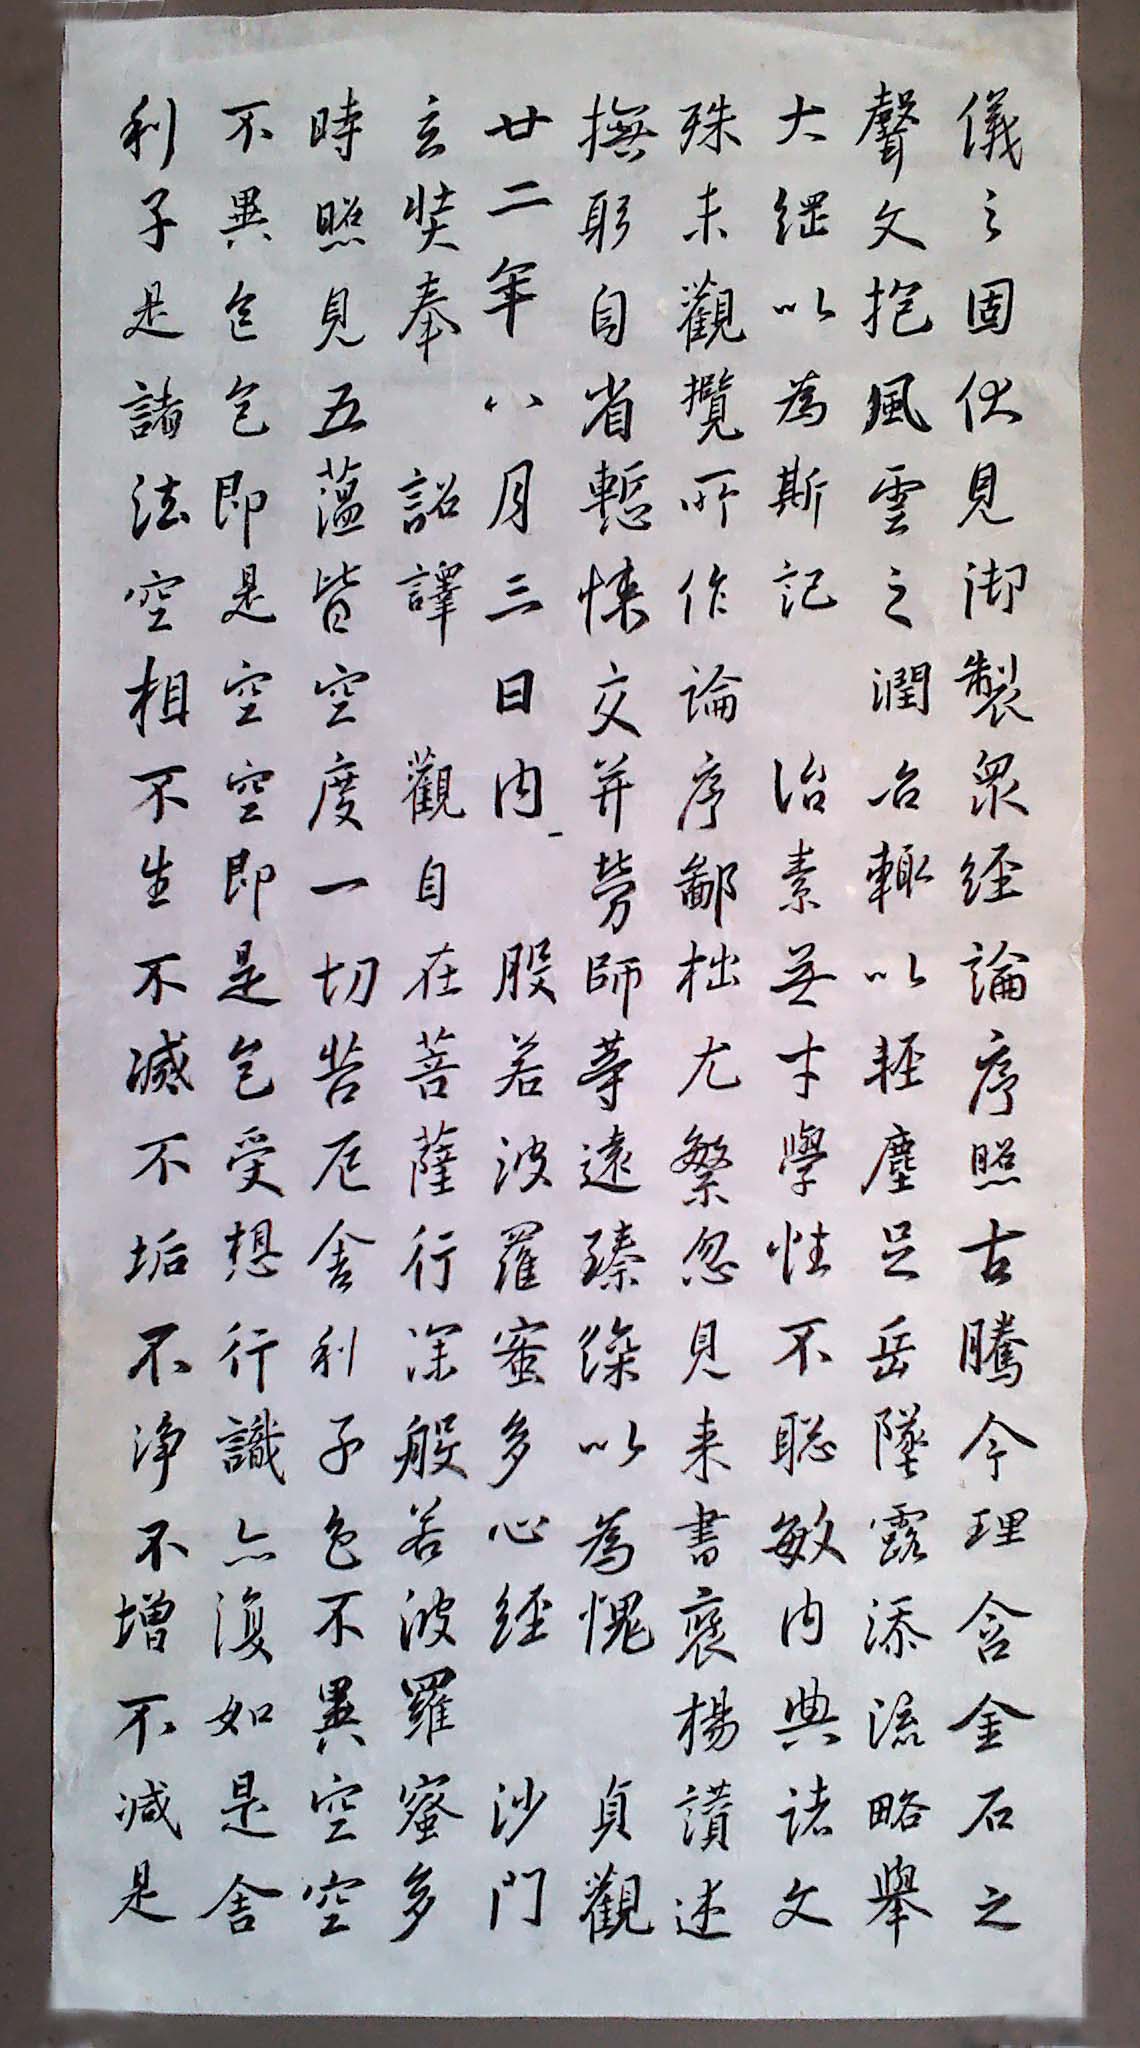 儀之固伏見御製衆經論序照古騰今理含金石之
聲文抱風雲之潤治輒以輕塵足岳墜露添流略舉
大綱以為斯記治素無才學性不聡敏内典諸文
殊未觀攬所作論序鄙拙尤繁忽見来書褒揚讃述
撫躬自省慙悚交并勞師等遠臻深以為愧貞觀
廿二年八月三日内般若波羅蜜多心經沙門
玄奘奉詔譯觀自在菩薩行深般若波羅蜜多
時照見五蕰皆空空度一切苦厄舎利子色不異空空
不異色色即是空空即是色受想行識亦復如是舎
利子是諸法空相不生不滅不垢不浄不增不減是